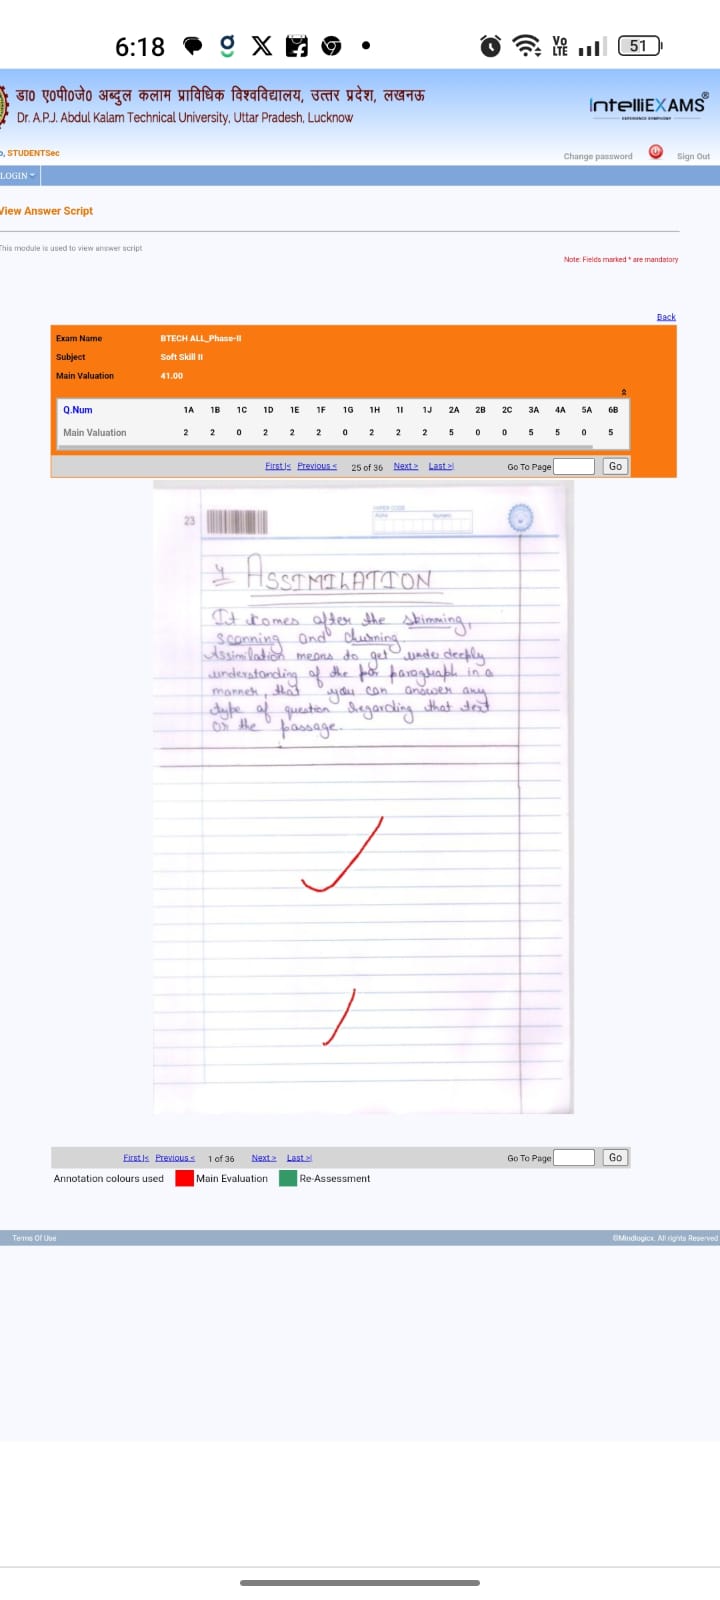 6:18
Vo LTE
51
डा0 ए0पी0जे0 अब्दुल कलाम प्राविधिक विश्वविद्यालय, उत्तर प्रदेश, लखनऊ
Dr. A.P.J. Abdul Kalam Technical University, Uttar Pradesh, Lucknow
IntelliEXAMS®
o, STUDENTSec
Change password
Sign Out
LOGIN
View Answer Script
This module is used to view answer script
Note: Fields marked * are mandatory
Back
Exam Name BTECH ALL_Phase-II
Subject Soft Skill II
Main Valuation 41.00
Q.Num 1A 1B 1C 1D 1E 1F 1G 1H 1I 1J 2A 2B 2C 3A 4A 5A 6B
Main Valuation 2 2 0 2 2 2 0 2 2 2 5 0 0 5 5 0 5
First|< Previous < 25 of 36 Next > Last >| Go To Page Go
23
PAPER CODE
4 ASSIMILATION
It comes after the skimming,
scanning and churning.
Assimilation means to get unde deeply
understanding of the par paragraph in a
manner, that you can answer any
type of question regarding that text
or the passage.
First|< Previous < 1 of 36 Next > Last >| Go To Page Go
Annotation colours used Main Evaluation Re-Assessment
Terms Of Use
©Mindlogicx. All rights Reserved